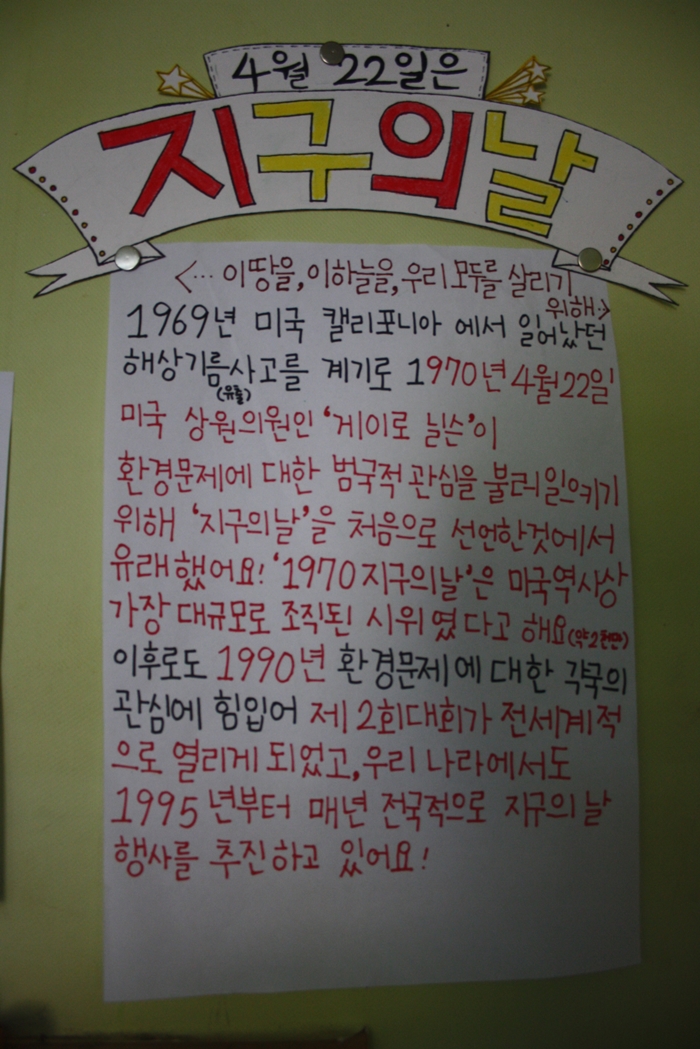 4월 22일은
지구의날
<… 이땅을, 이하늘을, 우리모두를 살리기
위해>
1969년 미국 캘리포니아 에서 일어났던
해상기름사고를 계기로 1970년 4월22일
(유출)
미국 상원의원인 '게이로 닐슨'이
환경문제에 대한 범국적 관심을 불러일으키기
위해 '지구의날'을 처음으로 선언한것에서
유래했어요! '1970 지구의날'은 미국역사상
가장 대규모로 조직된 시위였다고 해요(약2천만)
이후로도 1990년 환경문제에 대한 각국의
관심에 힘입어 제 2회대회가 전세계적
으로 열리게 되었고, 우리 나라에서도
1995년부터 매년 전국적으로 지구의 날
행사를 추진하고 있어요!